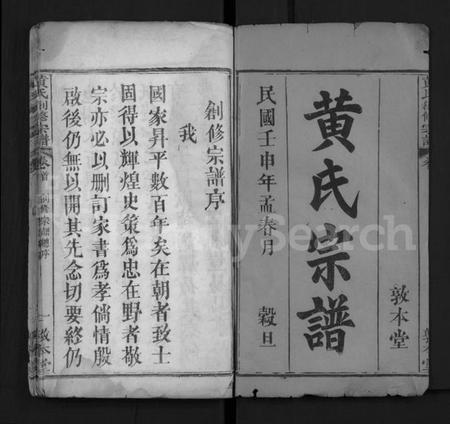 敦本堂
黄氏宗譜
民國壬申年孟春月 穀旦
創修宗譜序
我
國家昇平數百年矣在朝者致士
固得以輝煌史策為忠在野者敬
宗亦必以刪訂家書為孝倘情殷
啟後仍無以開其先念切要終仍
黃氏創修宗譜 卷首 創修宗譜總序 一 敦本堂
FamilySearch